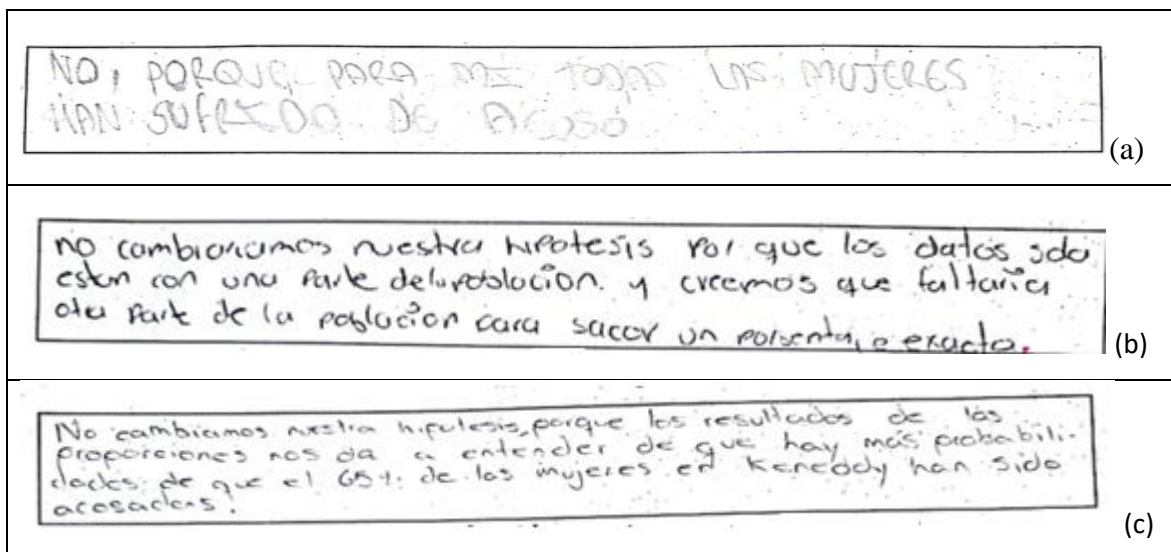 NO, PORQUE PARA MI TODAS LAS MUJERES
HAN SUFRIDO DE ACOSO
(a)
no cambiariamos nuestra hipotesis por que los datos solo
estan con una parte de la poblacion. y creemos que faltaria
otra parte de la poblacion para sacar un porsentaje exacto.
(b)
No cambiamos nuestra hipotesis, porque los resultados de las
proporciones nos da a entender de que hay más probabili-
dades de que el 65% de las mujeres en Keneddy han sido
acosadas.
(c)